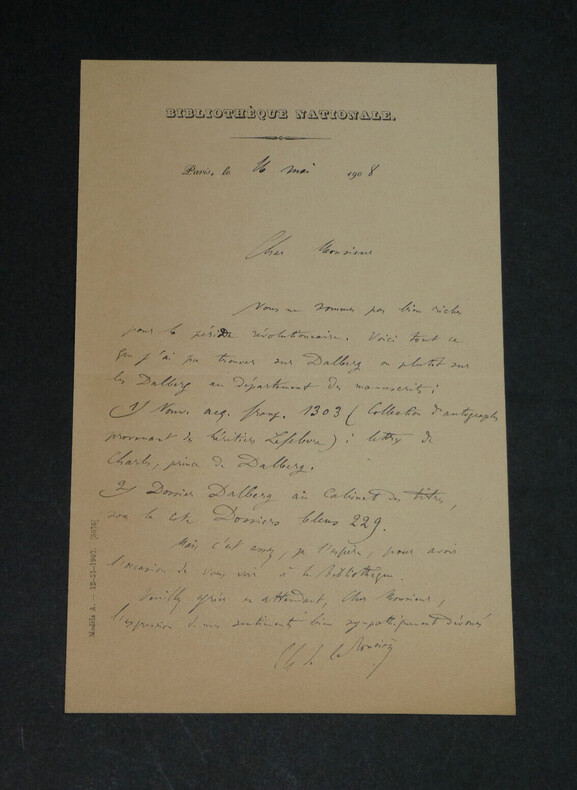 BIBLIOTHÈQUE NATIONALE.
Paris, le 16 mai 1908
Cher Monsieur
Nous ne sommes pas bien riches
pour la période révolutionnaire. Voici tout ce
que j'ai pu trouver sur Dalberg ou plutôt sur
les Dalberg au département des manuscrits :
1) Nouv. acq. franç. 1303 (Collection d'autographes
provenant des héritiers Lefebvre) : lettre de
Charles, prince de Dalberg.
2) Dossier Dalberg au Cabinet des titres,
sous la cote Dossiers bleus 229.
Mais c'est assez, je l'espère, pour avoir
l'occasion de vous voir à la Bibliothèque.
Veuillez agréer en attendant, Cher Monsieur,
l'expression de mes sentiments bien sympathiquement dévoués
Ch de la Roncière
Modèle A. — 12-11-1907.